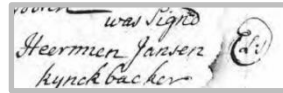 was Signd
Heermen Jansen
kynckbacker